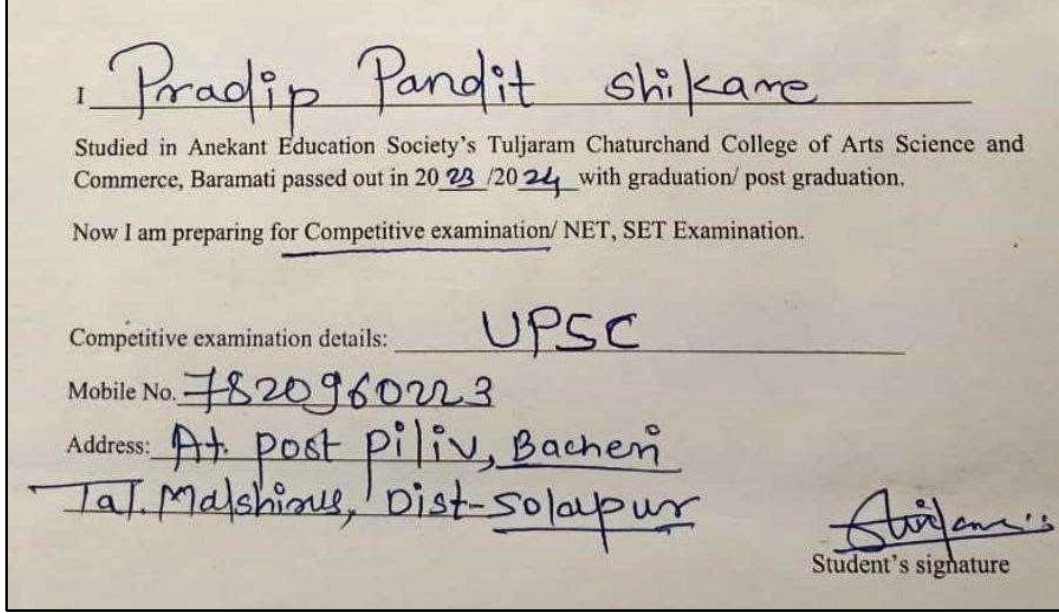 I Pradip Pandit Shikare
Studied in Anekant Education Society's Tuljaram Chaturchand College of Arts Science and
Commerce, Baramati passed out in 20 23 /20 24 with graduation/ post graduation.
Now I am preparing for Competitive examination/ NET, SET Examination.
Competitive examination details: UPSC
Mobile No. 7820960223
Address: At. post piliv, Bacheri
Tal. Malshirus, Dist-Solapur
Student's signature